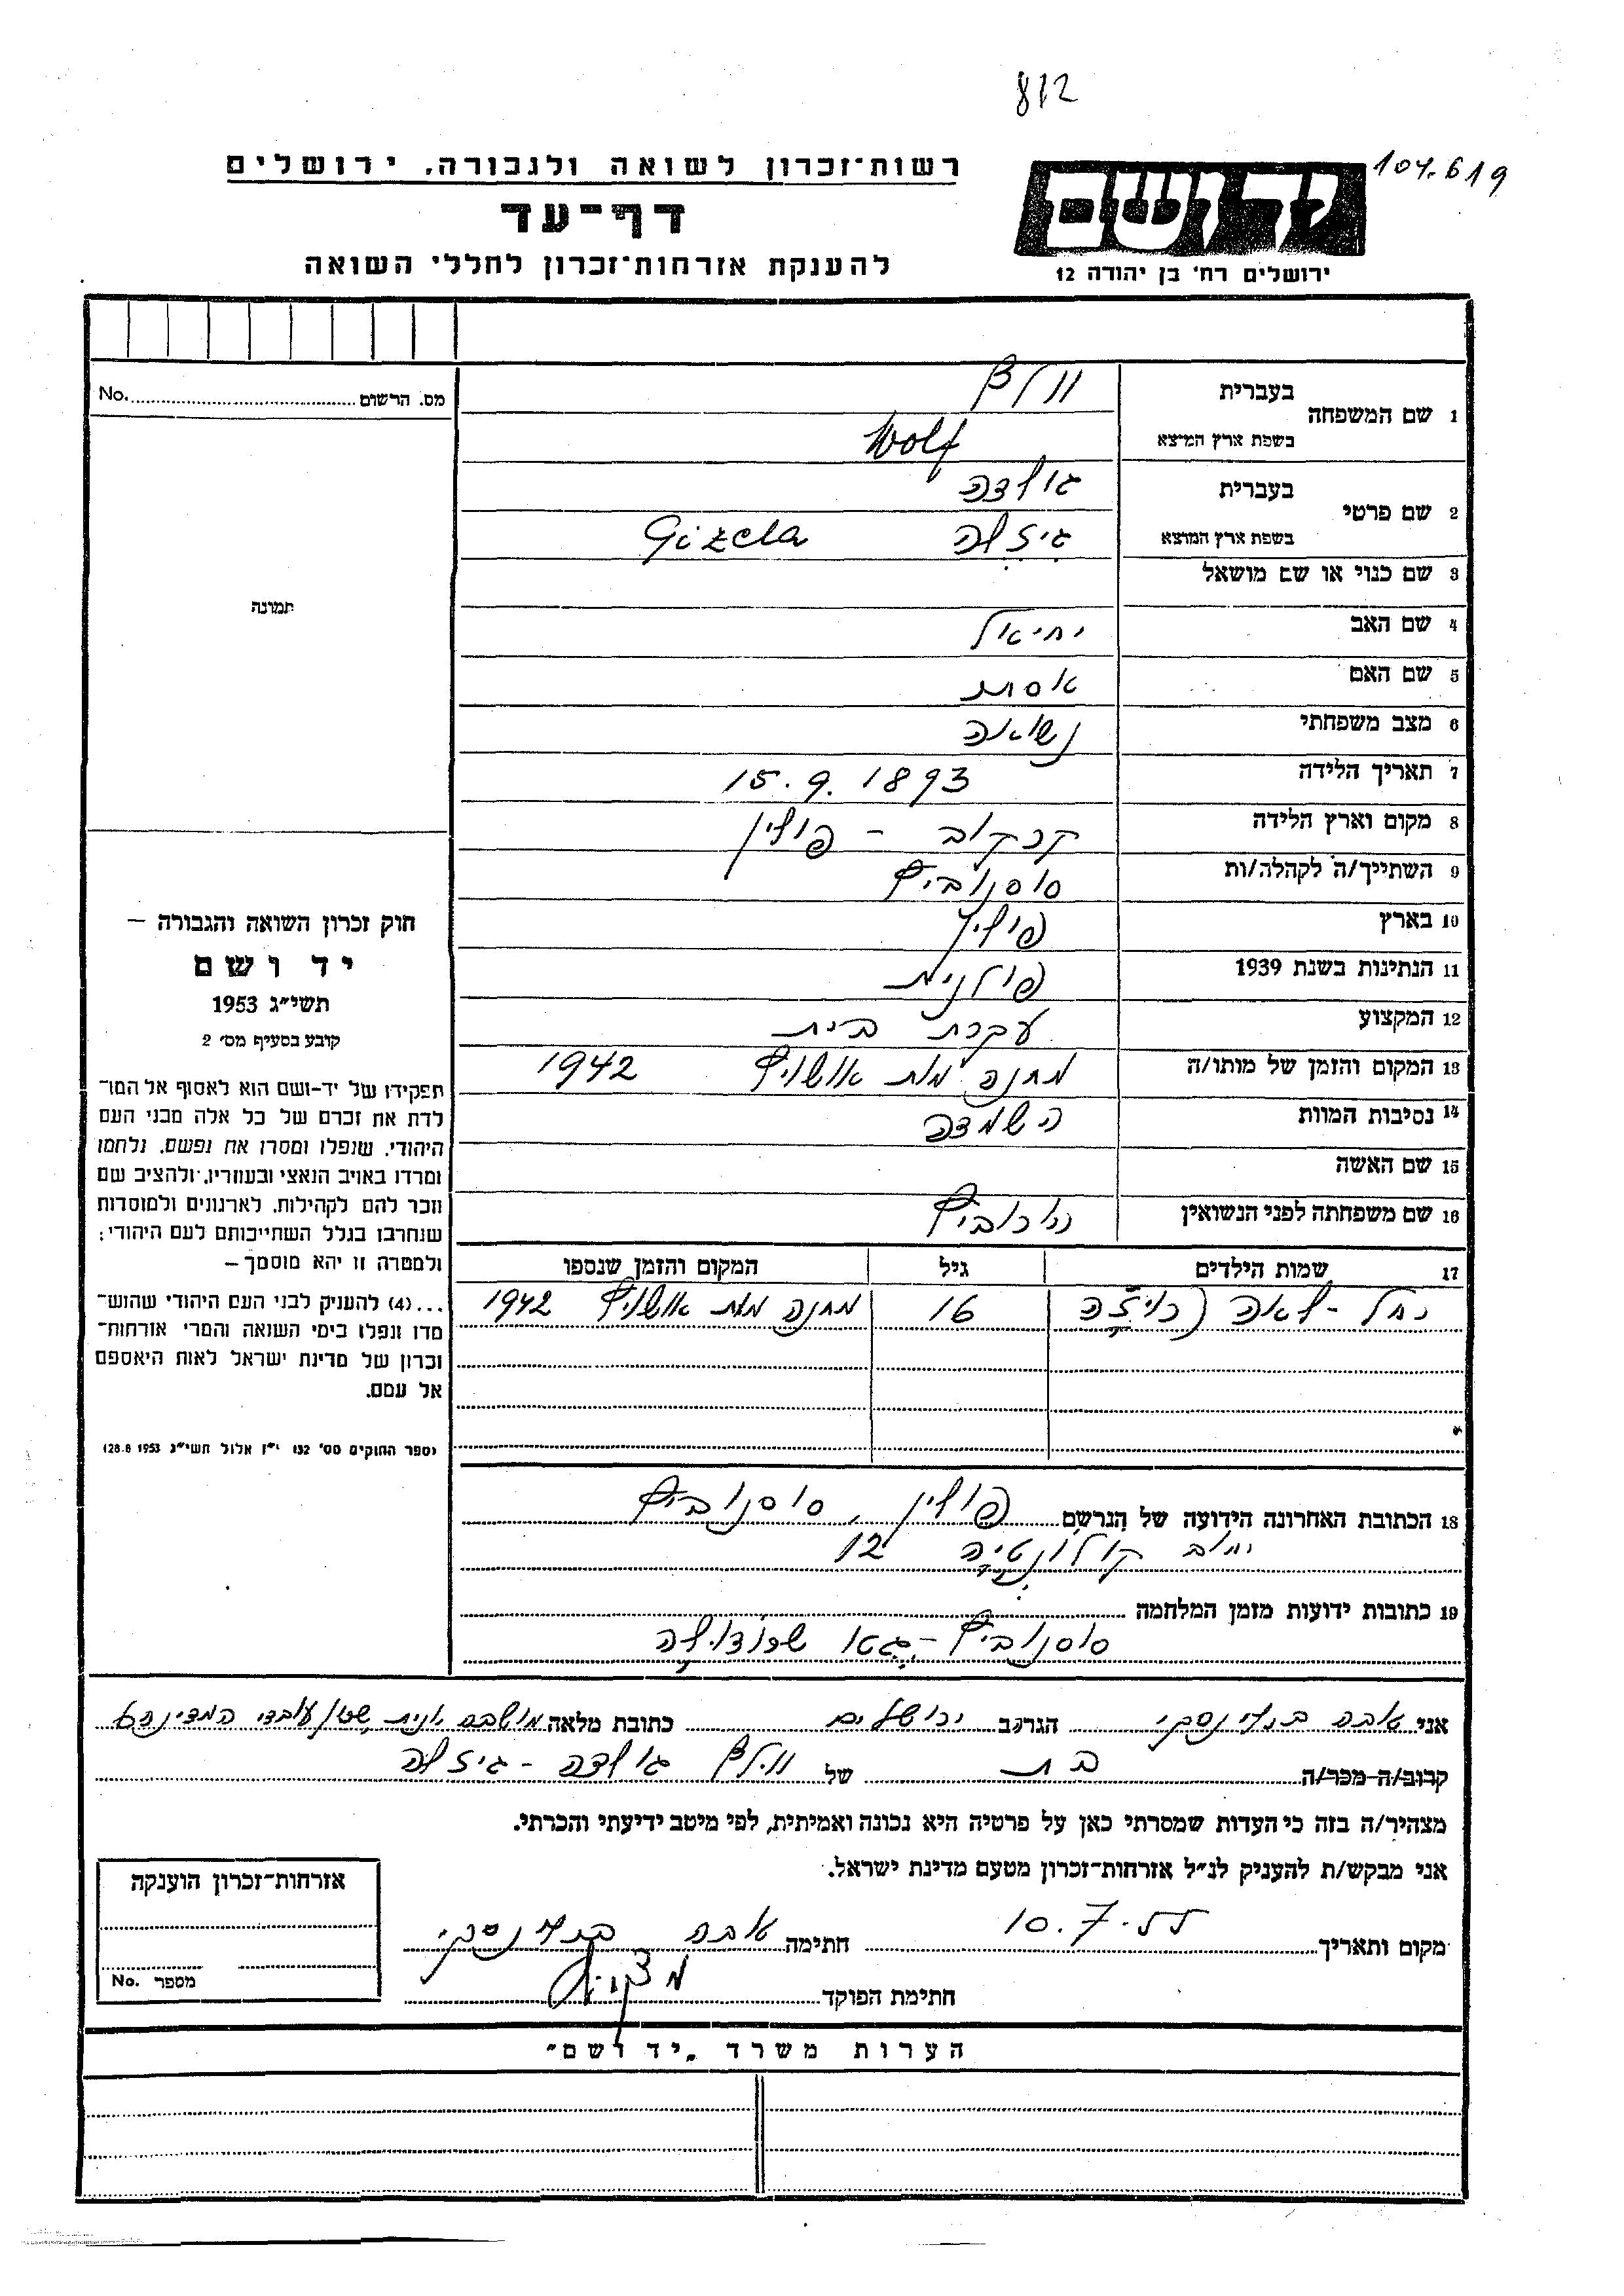 812
104.619
רשות־זכרון לשואה ולגבורה, ירושלים
דף־עד
להענקת אזרחות־זכרון לחללי השואה
יד ושם
ירושלים רח' בן יהודה 12
No. מס. הרשום
תמונה
1 שם המשפחה בעברית וולף
בשפת ארץ המוצא Wolf
2 שם פרטי בעברית גולדה
בשפת ארץ המוצא גיזלה Gizela
3 שם כנוי או שם מושאל
4 שם האב יחיאל
5 שם האם אסתר
6 מצב משפחתי נשואה
7 תאריך הלידה 15.9.1893
8 מקום וארץ הלידה קרקוב - פולין
9 השתייך/ה לקהלה/ות סוסנוביץ
10 בארץ פולין
11 הנתינות בשנת 1939 פולנית
12 המקצוע עקרת בית
13 המקום והזמן של מותו/ה מחנה מות אושויץ 1942
14 נסיבות המוות השמדה
15 שם האשה
16 שם משפחתה לפני הנשואין
17 שמות הילדים גיל המקום והזמן שנספו
רחל - לאה (רוזה 16 מחנה מות אושויץ 1942
18 הכתובת האחרונה הידועה של הנרשם פולין, סוסנוביץ
רחוב קולונטיה 12
19 כתובות ידועות מזמן המלחמה
סוסנוביץ - גטו שרודולה
חוק זכרון השואה והגבורה –
יד ושם
תשי"ג 1953
קובע בסעיף מס' 2
תפקידו של יד-ושם הוא לאסוף אל המו־
לדת את זכרם של כל אלה מבני העם
היהודי, שנפלו ומסרו את נפשם, נלחמו
ומרדו באויב הנאצי ובעוזריו, ולהציב שם
וזכר להם לקהילות, לארגונים ולמוסדות
שנחרבו בגלל השתייכותם לעם היהודי;
ולמטרה זו יהא מוסמך –
...(4) להעניק לבני העם היהודי שהוש־
מדו ונפלו בימי השואה והמרי אזרחות־
זכרון של מדינת ישראל לאות היאספם
אל עמם.
(ספר החוקים מס' 132 י"ז אלול תשי"ג 28.8.1953)
אני הגר/ה ב ירושלים כתובת מלאה מושבה יונית, שכון עובדי המדינה
קרוב/ה-מכר/ה בת של וולף גולדה - גיזלה
מצהיר/ה בזה כי העדות שמסרתי כאן על פרטיה היא נכונה ואמיתית, לפי מיטב ידיעתי והכרתי.
אני מבקש/ת להעניק לנ"ל אזרחות־זכרון מטעם מדינת ישראל.
מקום ותאריך 10.7.55 חתימה
חתימת הפוקד
אזרחות־זכרון הוענקה
No. מספר
הערות משרד „יד ושם"